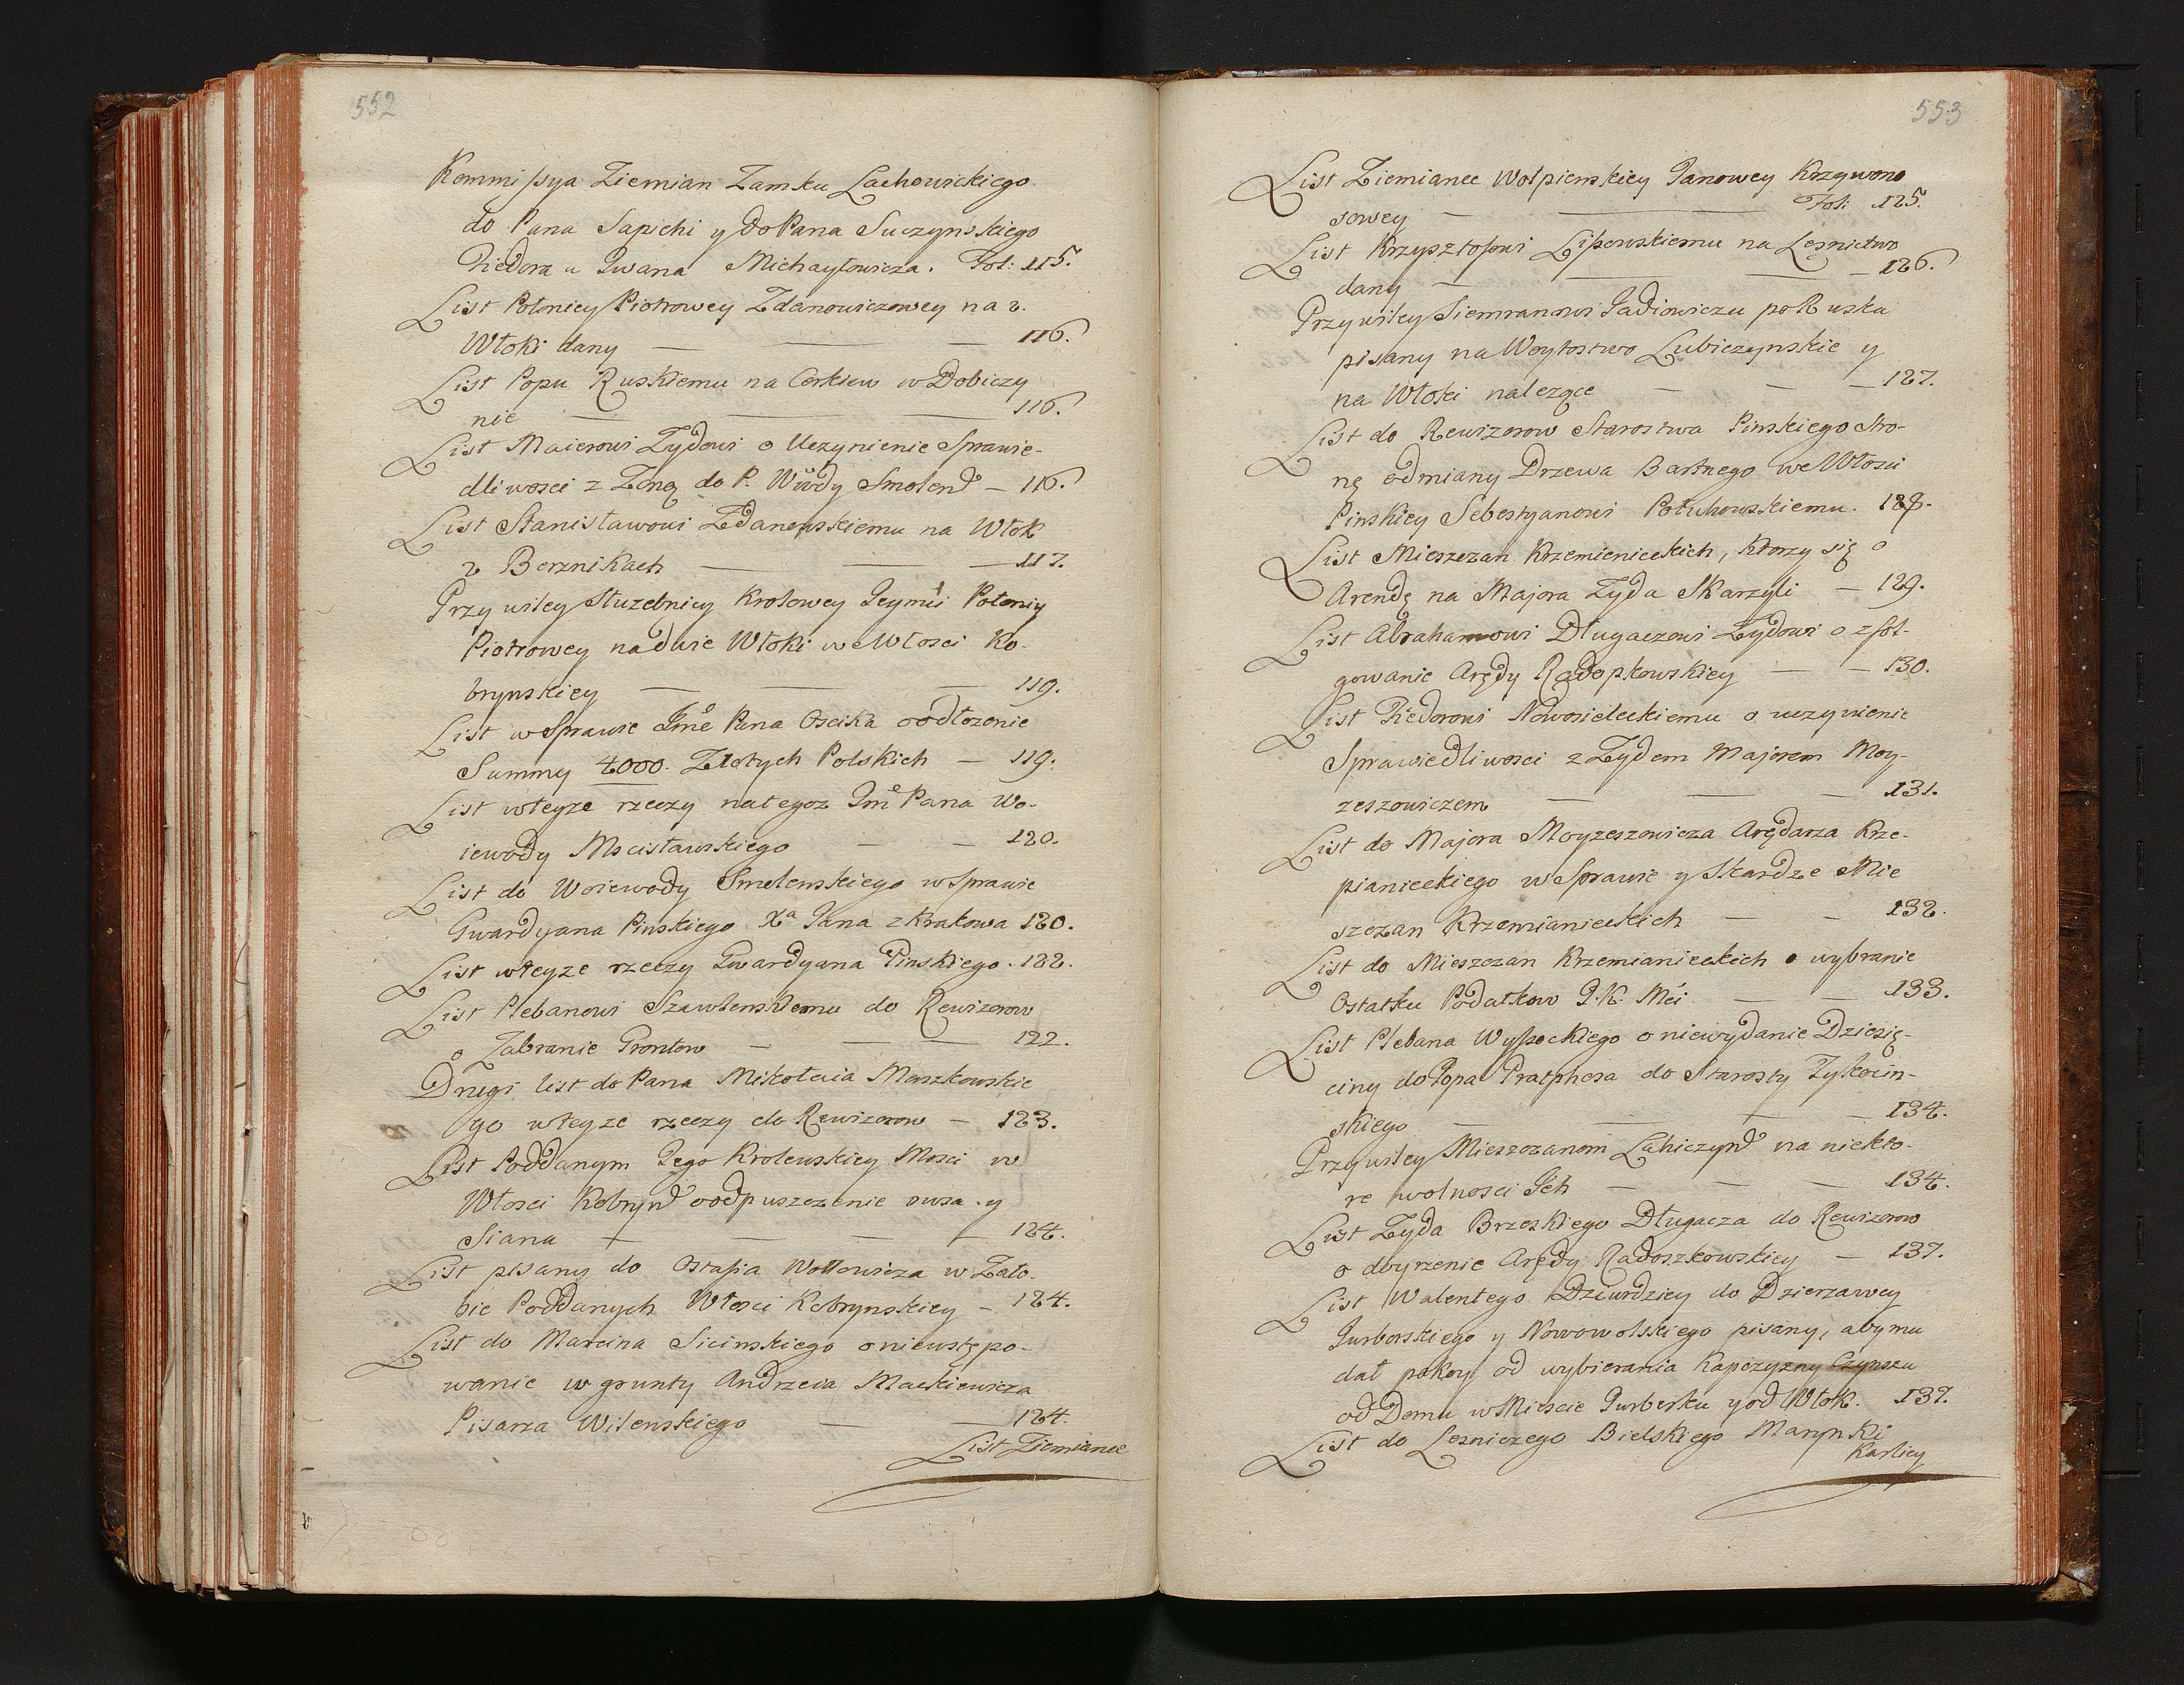 552
Kommissya Ziemian Zamku Lachowickiego
do Pana Sapiehi y do Pana Suczynskiego
Fiedora a Iwana Michayłowicza. Fol: 115.
List Połoniey Piotrowey Zdanowiczowey na 2.
Włoki dany — — — 116.
List Popu Ruskiemu na Cerkiew w Dobiczy
nie — — — 116.
List Maierowi Zydowi o Uczynienie Sprawie-
dliwosci z Zoną do P. Wdy Smolen — 116.
List Stanisławowi Zdanowskiemu na Włok
2 Berznikach — — — 117.
Przywiley Słuzebnicy Krolowey Jeymci Połoniy
Piotrowey na dwie Włoki we Włosci Ko-
brynskiey — — — 119.
List w Sprawie Jme Pana Oscika o odłozenie
Summy 4000. Złotych Polskich — 119.
List w teyze rzeczy na tegoz Jme Pana Wo-
iewody Mscisławskiego — — 120.
List do Woiewody Smolenskiego w Sprawie
Gwardyana Pinskiego Xa Jana z Krakowa 120.
List w teyze rzeczy Gwardyana Pinskiego. 122.
List Plebanowi Szawlenskiemu do Rewizorow
o Zabranie Grontow — — — 122.
Drugi list do Pana Mikołaia Maszkowskie
go w teyze rzeczy do Rewizorow — 123.
List Poddanym Jego Krolewskiey Mosci w
Włosci Kobryn o odpuszczenie owsa y
Siana — — — — 124.
List pisany do Ostafia Wołłowicza w Zało-
bie Poddanych Włosci Kobrynskiey — 124.
List do Marcina Sicinskiego o niewstępo-
wanie w grunty Andrzeia Mackiewicza
Pisarza Wilenskiego — — 124.
List Ziemiance
553
List Ziemiance Wołpienskiey Janowey Krzywono
sowey — — Fol: 125.
List Krzysztofowi Lipowskiemu na Leznictwo
dany — — — — 126.
Przywiley Siemranowi Jadiowiczu po Rusku
pisany na Woytostwo Lubiczynskie y
na Włoki nalezące — — — 127.
List do Rewizorow Starostwa Pinskiego stro-
nę odmiany Drzewa Bartnego we Włosci
Pinskiey Sebestyanowi Połuhowskiemu. 128.
List Mieszczan Krzemienieckich, Ktorzy się o
Arendę na Majora Zyda Skarzyli — 129.
List Abrahamowi Długaczowi Zydowi o zfol-
gowanie Arędy Radopkowskiey — — 130.
List Fiedorowi Nowosieleckiemu o uczynienie
Sprawiedliwosci z Zydem Majorem Moy-
zeszowiczem — — — 131.
List do Majora Moyzeszowicza Arędarza Krze-
pianieckiego w Sprawie y Skardze Mie
szczan Krzemianieckich — — 132.
List do Mieszczan Krzemianieckich o wybranie
Ostatku Podatkow J.K. Mci — — 133.
List Plebana Wysockiego o niewydanie Dziesię-
ciny do Popa Pratphosa do Starosty Tykocin-
skiego — — — — 134.
Przywiley Mieszczanom Lahiczyn na niekto-
re wolnosci Jch — — — 134.
List Zyda Brzeskiego Długacza do Rewizorow
o doyrzenie Arędy Radoszkowskiey — 137.
List Walentego Dziurdziey do Dzierzawcy
Jurborskiego y Nowowolskiego pisany, aby mu
dał pokoy od wybierania Kapczyzny Czynszu
od Domu w Miescie Jurborku y od Włok. 137.
List do Lesniczego Bielskiego Marynki
Karlicy